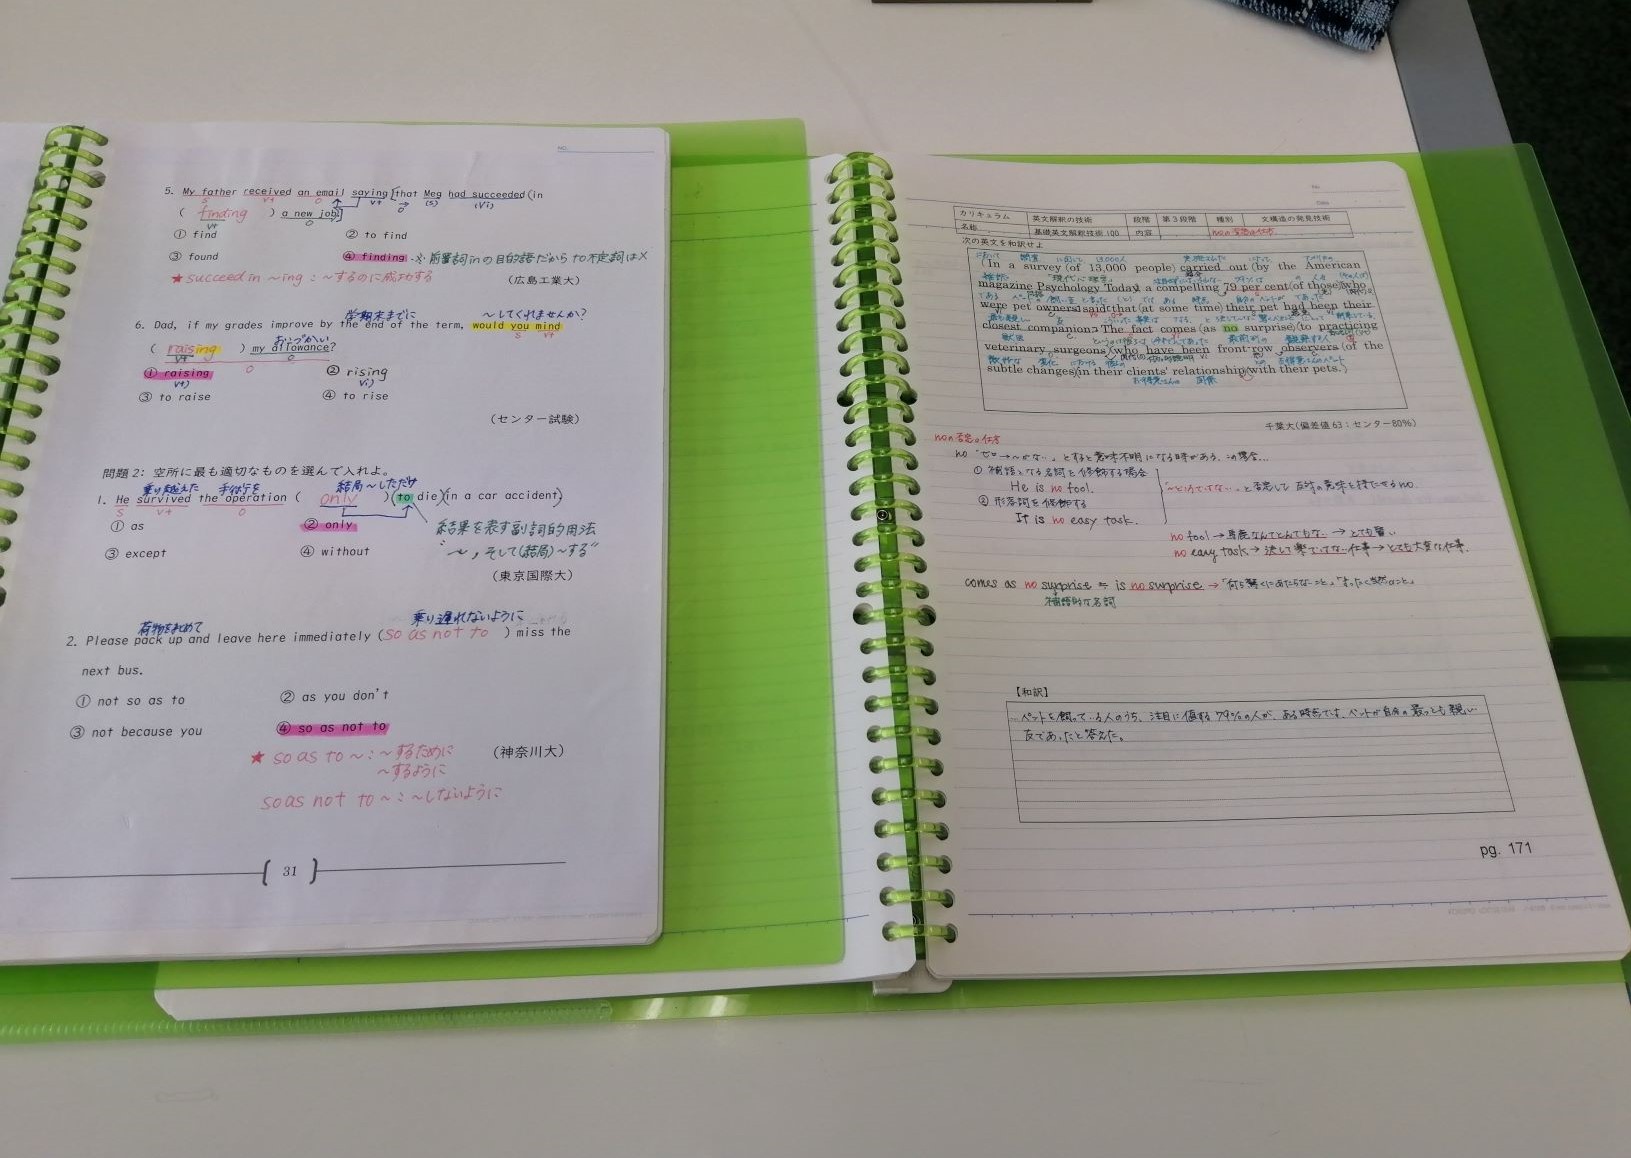 NO.
5. My father received an email saying that Meg had succeeded in
S vt O vt (S) (Vi)
( finding ) a new job
vt O
① find ② to find
③ found ④ finding ※前置詞inの目的語だからto不定詞は×
★succeed in ~ing : ~するのに成功する (広島工業大)
学期末までに ~してくれませんか?
6. Dad, if my grades improve by the end of the term, would you mind
S vt
おこづかい
( raising ) my allowance?
vt O
O
① raising ② rising
vt) vi)
③ to raise ④ to rise
(センター試験)
問題 2: 空所に最も適切なものを選んで入れよ。
乗り越えた 手術を 結局~しただけ
1. He survived the operation ( only ) (to die)(in a car accident)
S vt O
① as ② only
③ except ④ without
結果を表す副詞的用法
"~, そして(結局)~する"
(東京国際大)
荷物をまとめて 乗り遅れないように
2. Please pack up and leave here immediately ( so as not to ) miss the
next bus.
① not so as to ② as you don't
③ not because you ④ so as not to
★ so as to ~ : ~するために
~するように
(神奈川大)
so as not to ~ : ~しないように
31
No.
Date
カリキュラム 英文解釈の技術 段階 第3段階 種別 文構造の発見技術
名称 基礎英文解釈技術 100 内容 noの否定の仕方
次の英文を和訳せよ
(In a survey (of 13,000 people) carried out (by the American
magazine Psychology Today, a compelling 79 per cent (of those) who
were pet owners said that (at some time) their pet had been their
closest companion. The fact comes (as no surprise) (to practicing
veterinary surgeons) (who have been front-row observers (of the
subtle changes) (in their clients' relationship) (with their pets.)
お得意さんの 関係
千葉大(偏差値 63:センター80%)
noの否定の仕方
no "ゼロ→~がない"とすると意味不明になる時がある。この場合...
① 補語となる名詞を修飾する場合
He is no fool.
② 形容詞を修飾する
It is no easy task.
"~どころではない"と否定して反対の意味を持たせるno.
no fool → 馬鹿なんてとんでもない → とても賢い
no easy task → 決して楽ではない仕事 → とても大変な仕事.
comes as no surprise ≒ is no surprise → 「何ら驚くにあたらないこと」「まったく当然のこと」
補語的な名詞
【和訳】
ペットを飼っている人のうち、注目に値する79%の人が、ある時点では、ペットが自分の最っとも親しい
友であったと答えた。
pg. 171